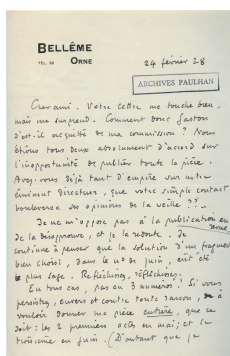 BELLÊME
TÉL. 28 ORNE
24 février 28
ARCHIVES PAULHAN
Cher ami. Votre lettre me touche bien,
mais me surprend. Comment donc Gaston
s'est-il acquitté de ma commission ? Nous
étions tous deux absolument d'accord sur
l'inopportunité de publier toute la pièce.
Avez-vous déjà tant d'empire sur notre
éminent directeur, que votre simple contact
bouleverse ses opinions de la veille ??–
Je ne m'oppose pas à la publication en
revue,
de la désapprouve, et je la redoute. Je
continue à penser que la solution d'un fragment
bien choisi, dans le no de juin, eût été
plus sage. Réfléchissez, réfléchissez.
En tous cas, pas en 3 numéros. Si vous
persistez, envers et contre toute raison, à
vouloir donner ma pièce entière, que ce
soit : les 2 premiers actes en mai ; et le
troisième en juin. (D'autant que je